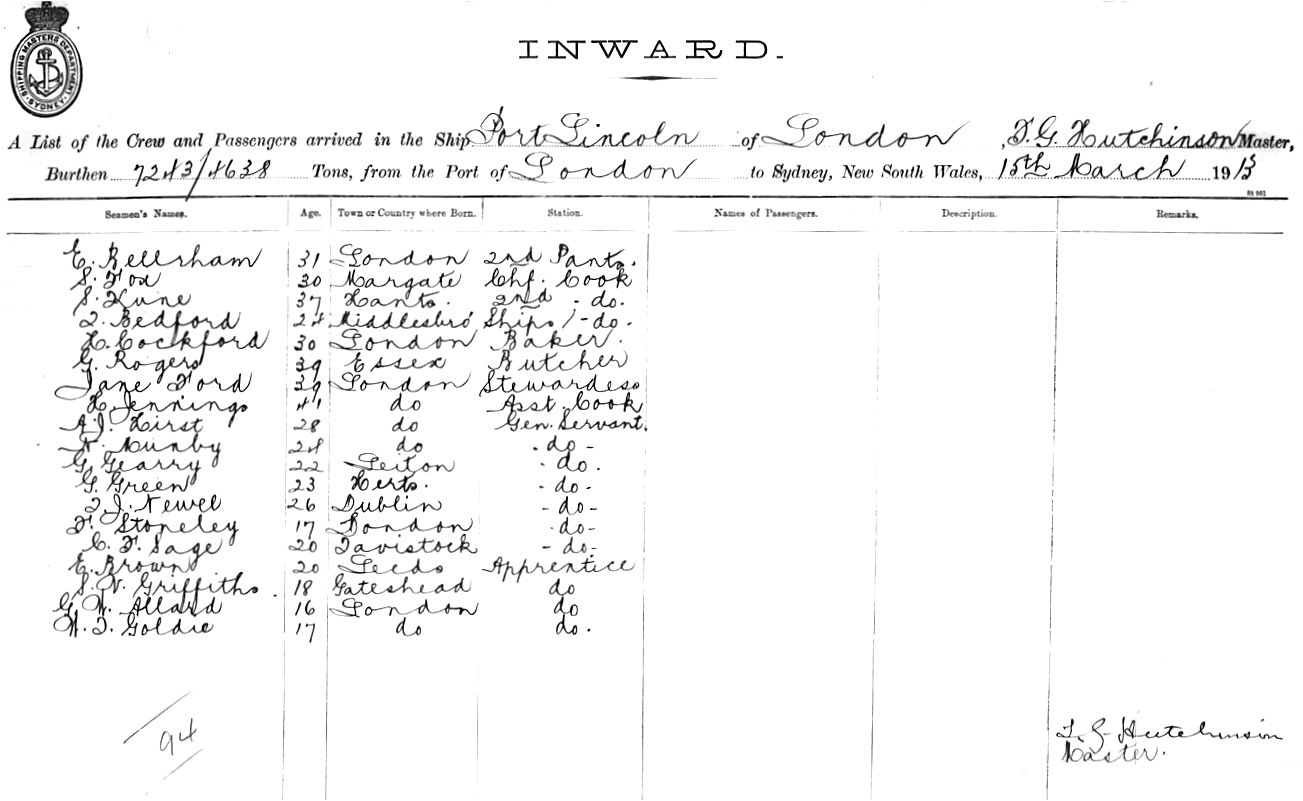 SHIPPING MASTERS DEPARTMENT SYDNEY
INWARD.
A List of the Crew and Passengers arrived in the Ship Port Lincoln of London, F. G. Hutchinson Master,
Burthen 7243/4638 Tons, from the Port of London to Sydney, New South Wales, 15th March 1913
Seamen's Names. Age. Town or Country where Born. Station. Names of Passengers. Description. Remarks.
E. Bellsham 31 London 2nd Pants.
S. Fox 30 Margate Chf. Cook
S. Hune 37 Hants. 2nd - do.
T. Bedford 24 Middlesbro' Ships / - do -
H. Cockford 30 London Baker.
G. Rogers 39 Essex Butcher
Jane Ford 39 London Stewardess
H. Jennings 41 do Asst. Cook
A. J. Hirst 28 do Gen. Servant.
N. Munby 24 do - do -
G. Gearry 22 Leiton - do.
G. Green 23 Herts. - do -
T. J. Newel 26 Dublin - do -
F. Stoneley 17 London - do -
C. F. Sage 20 Tavistock - do -
E. Brown 20 Leeds Apprentice
S. N. Griffiths. 18 Gateshead do
G. W. Allard 16 London do
W. T. Goldie 17 do do.
94
F. G. Hutchinson
Master.